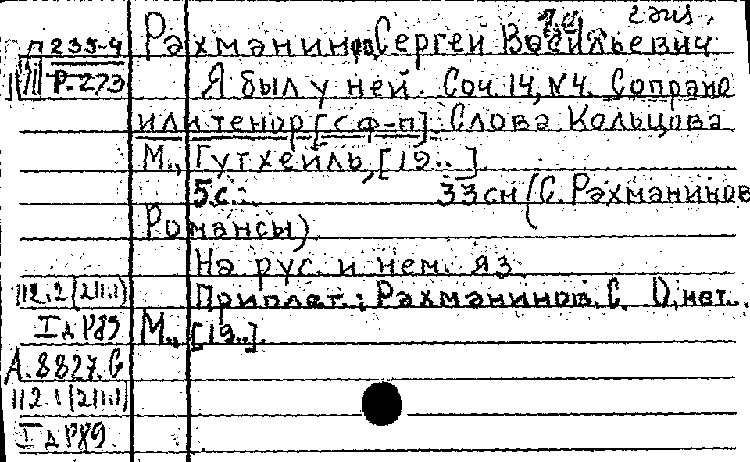 235-4
Р-273
Рахманинов, Сергей Васильевич
Я был у ней. Соч. 14, №4. Сопрано
или тенор [с ф-п]. Слова Кольцова
М., Гутхейль, [19..]
5с. 33см (С. Рахманинов
Романсы)
На рус. и нем. яз.
112.2(211.1) Приплет.: Рахманинов. С. О, нет..
I д Р89 М., [19..].
А.8827.С
112.1(211.1)
I д Р89